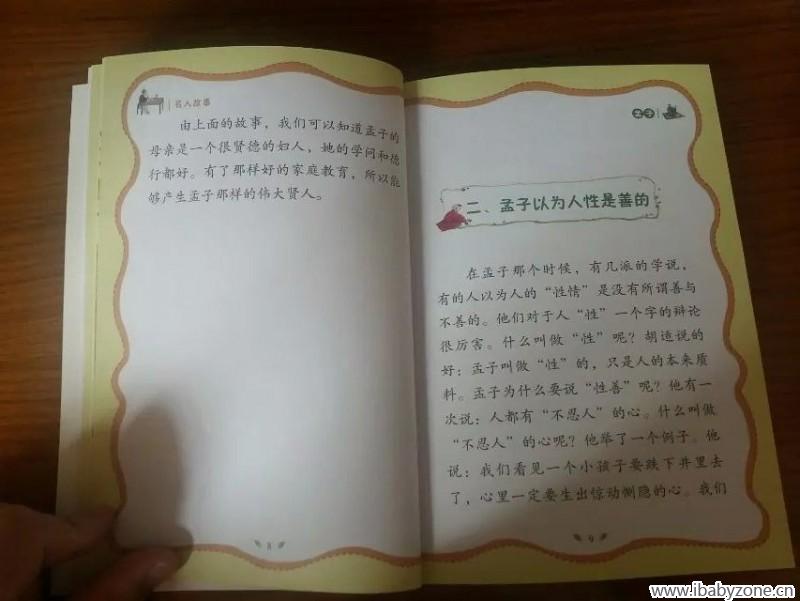 名人故事
由上面的故事，我们可以知道孟子的
母亲是一个很贤德的妇人，她的学问和德
行都好。有了那样好的家庭教育，所以能
够产生孟子那样的伟大贤人。
8
孟子
二、孟子以为人性是善的
在孟子那个时候，有几派的学说，
有的人以为人的“性情”是没有所谓善与
不善的。他们对于人“性”一个字的辩论
很厉害。什么叫做“性”呢？胡适说的
好：孟子叫做“性”的，只是人的本来质
料。孟子为什么要说“性善”呢？他有一
次说：人都有“不忍人”的心。什么叫做
“不忍人”的心呢？他举了一个例子。他
说：我们看见一个小孩子要跌下井里去
了，心里一定要生出惊动恻隐的心。我们
9
www.ibabyzone.cn